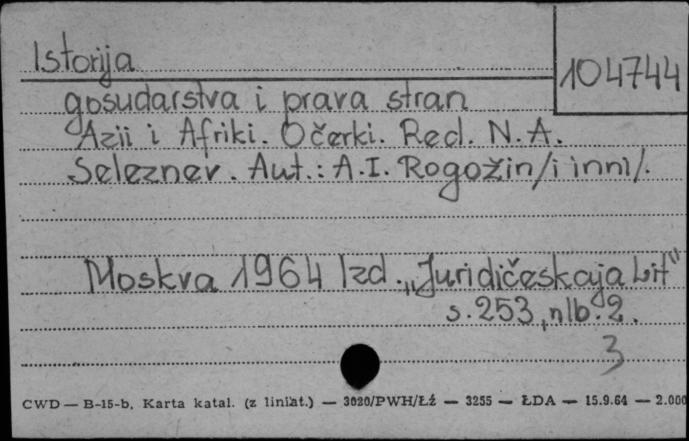 Istorija
104744
gosudarstva i prava stran
Azii i Afriki. Očerki. Red. N.A.
Seleznev. Aut.: A.I. Rogožin /i inni/.
Moskva 1964 Izd. „Juridičeskaja Lit"
s. 253, nlb. 2.
3
CWD — B-15-b, Karta katal. (z liniat.) — 3020/PWH/Łź — 3255 — ŁDA — 15.9.64 — 2.000